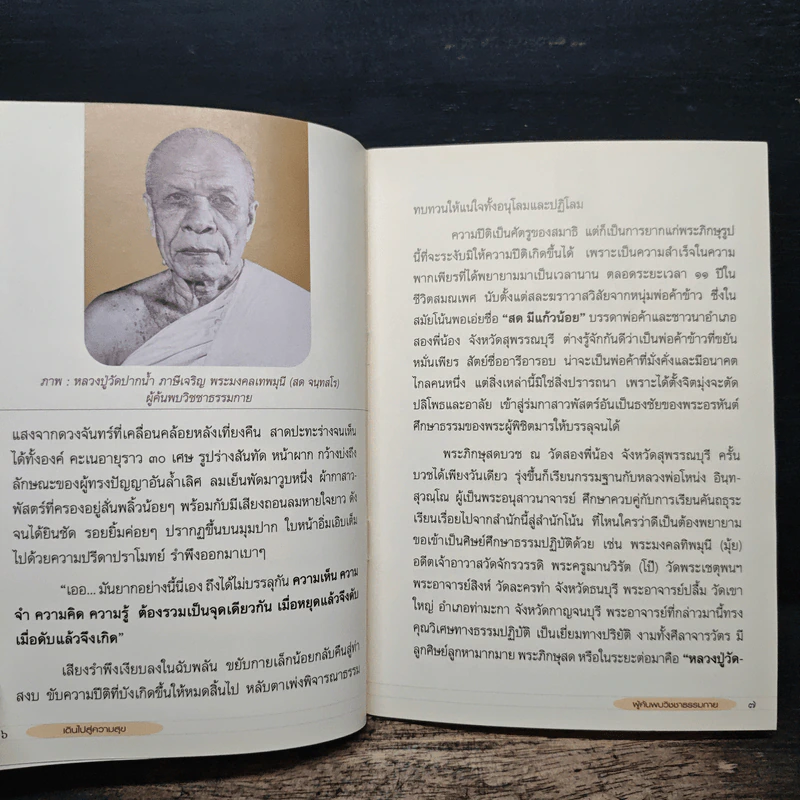 ภาพ : หลวงปู่วัดปากน้ำ ภาษีเจริญ พระมงคลเทพมุนี (สด จนฺทสโร)
ผู้ค้นพบวิชชาธรรมกาย
แสงจากดวงจันทร์ที่เคลื่อนคล้อยหลังเที่ยงคืน สาดปะทะร่างจนเห็น
ได้ทั้งองค์ คะเนอายุราว ๓๐ เศษ รูปร่างสันทัด หน้าผาก กว้างบ่งถึง
ลักษณะของผู้ทรงปัญญาอันล้ำเลิศ ลมเย็นพัดมาวูบหนึ่ง ผ้ากาสาว-
พัสตร์ที่ครองอยู่สั่นพลิ้วน้อยๆ พร้อมกับมีเสียงถอนลมหายใจยาว ดัง
จนได้ยินชัด รอยยิ้มค่อยๆ ปรากฏขึ้นบนมุมปาก ใบหน้าอิ่มเอิบเต็ม
ไปด้วยความปรีดาปราโมทย์ รำพึงออกมาเบาๆ
“เออ... มันยากอย่างนี้นี่เอง ถึงได้ไม่บรรลุกัน ความเห็น ความ
จำ ความคิด ความรู้ ต้องรวมเป็นจุดเดียวกัน เมื่อหยุดแล้วจึงดับ
เมื่อดับแล้วจึงเกิด”
เสียงรำพึงเงียบลงในฉับพลัน ขยับกายเล็กน้อยกลับคืนสู่ท่า
สงบ ขับความปีติที่บังเกิดขึ้นให้หมดสิ้นไป หลับตาเพ่งพิจารณาธรรม
๖ เดินไปสู่ความสุข
ทบทวนให้แน่ใจทั้งอนุโลมและปฏิโลม
ความปีติเป็นศัตรูของสมาธิ แต่ก็เป็นการยากแก่พระภิกษุรูป
นี้ที่จะระงับมิให้ความปีติเกิดขึ้นได้ เพราะเป็นความสำเร็จในความ
พากเพียรที่ได้พยายามมาเป็นเวลานาน ตลอดระยะเวลา ๑๑ ปีใน
ชีวิตสมณเพศ นับตั้งแต่สละฆราวาสวิสัยจากหนุ่มพ่อค้าข้าว ซึ่งใน
สมัยโน้นพอเอ่ยชื่อ “สด มีแก้วน้อย” บรรดาพ่อค้าและชาวนาอำเภอ
สองพี่น้อง จังหวัดสุพรรณบุรี ต่างรู้จักกันดีว่าเป็นพ่อค้าข้าวที่ขยัน
หมั่นเพียร สัตย์ซื่ออารีอารอบ น่าจะเป็นพ่อค้าที่มั่งคั่งและมีอนาคต
ไกลคนหนึ่ง แต่สิ่งเหล่านี้มิใช่สิ่งปรารถนา เพราะได้ตั้งจิตมุ่งจะตัด
ปลิโพธและอาลัย เข้าสู่ร่มกาสาวพัสตร์อันเป็นธงชัยของพระอรหันต์
ศึกษาธรรมของพระผู้พิชิตมารให้บรรลุจนได้
พระภิกษุสดบวช ณ วัดสองพี่น้อง จังหวัดสุพรรณบุรี ครั้น
บวชได้เพียงวันเดียว รุ่งขึ้นก็เรียนกรรมฐานกับหลวงพ่อโหน่ง อินฺท-
สุวณฺโณ ผู้เป็นพระอนุสาวนาจารย์ ศึกษาควบคู่กับการเรียนคันถธุระ
เรียนเรื่อยไปจากสำนักนี้สู่สำนักโน้น ที่ไหนใครว่าดีเป็นต้องพยายาม
ขอเข้าเป็นศิษย์ศึกษาธรรมปฏิบัติด้วย เช่น พระมงคลทิพมุนี (มุ้ย)
อดีตเจ้าอาวาสวัดจักรวรรดิ พระครูฌานวิรัต (โป๊) วัดพระเชตุพนฯ
พระอาจารย์สิงห์ วัดละครทำ จังหวัดธนบุรี พระอาจารย์ปลื้ม วัดเขา
ใหญ่ อำเภอท่ามะกา จังหวัดกาญจนบุรี พระอาจารย์ที่กล่าวมานี้ทรง
คุณวิเศษทางธรรมปฏิบัติ เป็นเยี่ยมทางปริยัติ งามทั้งศีลาจารวัตร มี
ลูกศิษย์ลูกหามากมาย พระภิกษุสด หรือในระยะต่อมาคือ “หลวงปู่วัด-
ผู้ค้นพบวิชชาธรรมกาย ๗